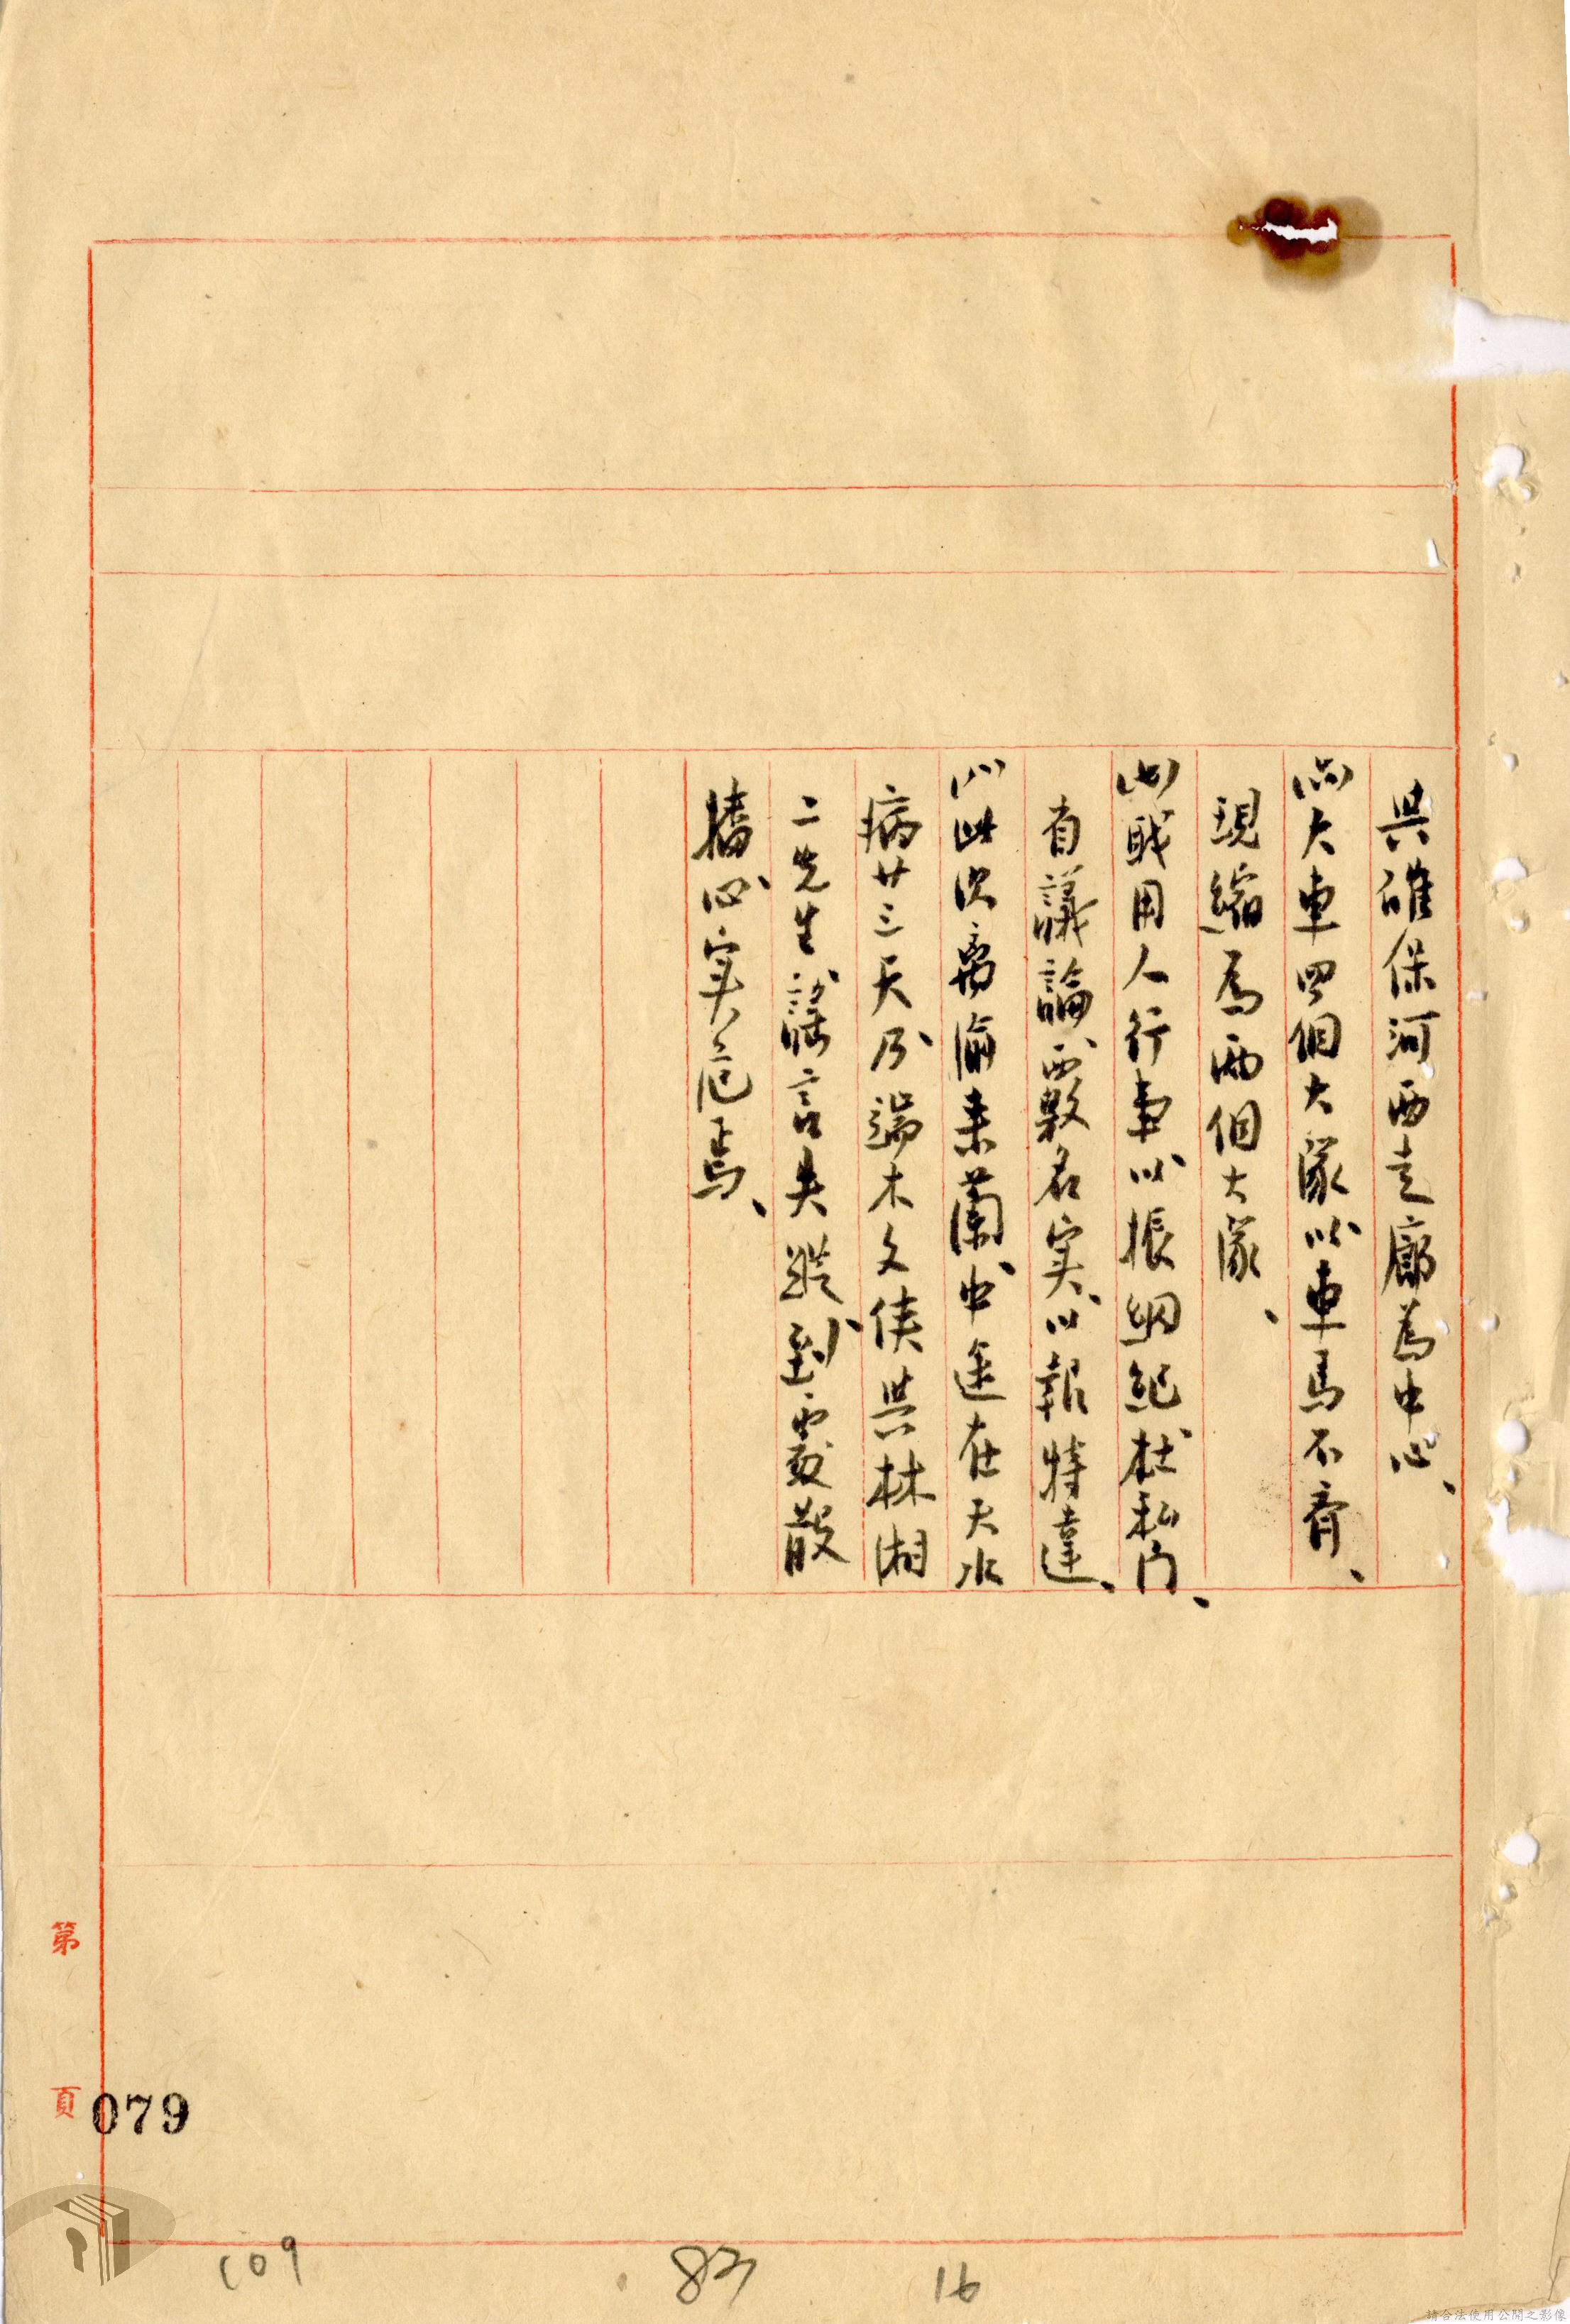 與確保河西走廊為中心、
大車四個大隊以車馬不齊、
現縮為兩個大隊、
職用人行事以振綱紀杜私门、
有議論、覈名实、以報特達、
此次离渝来蘭、中途在天水
病廿三天乃端木文俠與林湘
二先生謠言失蹤到處散
播心实危焉、
第 頁
079
109
83
16
請合法使用公開之影像